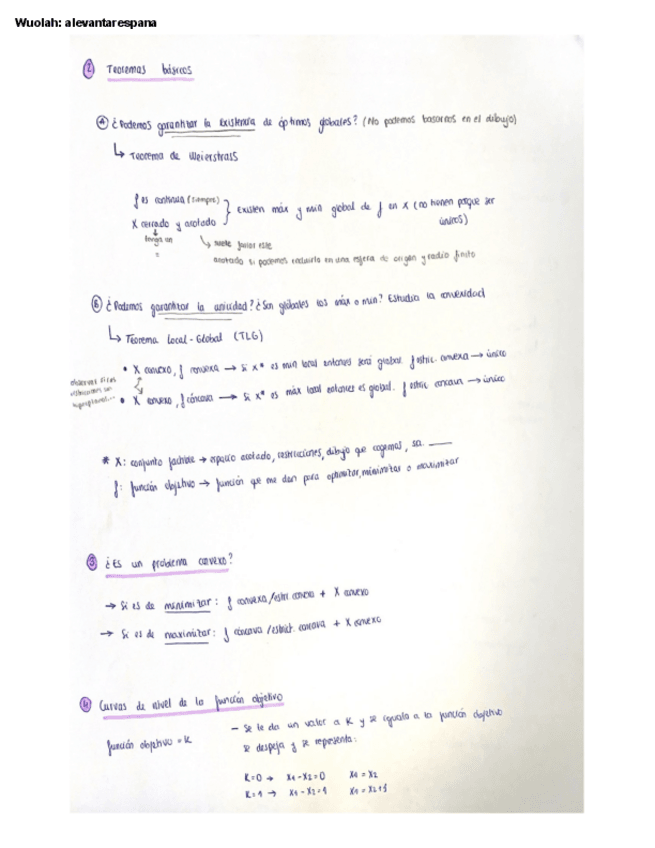 Wuolah: alevantarespana
② Teoremas básicos
Ⓐ ¿Podemos garantizar la existencia de óptimos globales? (No podemos basarnos en el dibujo)
↳ Teorema de Weierstrass
f es continua (siempre)
X cerrado y acotado } Existen máx y min global de f en X (no tienen porque ser únicos)
tenga un =
↳ suele fallar este
acotado si podemos incluirlo en una esfera de origen y radio finito
Ⓑ ¿Podemos garantizar la unicidad? ¿Son globales los máx o min? Estudia la convexidad
↳ Teorema Local-Global (TLG)
• X convexo, f convexa → Si x* es min local entonces será global. f estric. convexa → único
observar si las restricciones son
• X convexo, f cóncava → Si x* es máx local entonces es global. f estric concava → único
* X: conjunto factible → espacio acotado, restricciones, dibujo que cogemos, s.a. ____
f: función objetivo → función que me dan para optimizar, minimizar o maximizar
③ ¿Es un problema convexo?
→ Si es de minimizar: f convexa/estri. convexa + X convexo
→ Si es de maximizar: f cóncava/estrict. concava + X convexo
④ Curvas de nivel de la función objetivo
función objetivo = K
– Se le da un valor a K y se iguala a la función objetivo
se despeja y se representa:
K=0 → X1-X2=0 X1=X2
K=1 → X1-X2=1 X1=X2+1